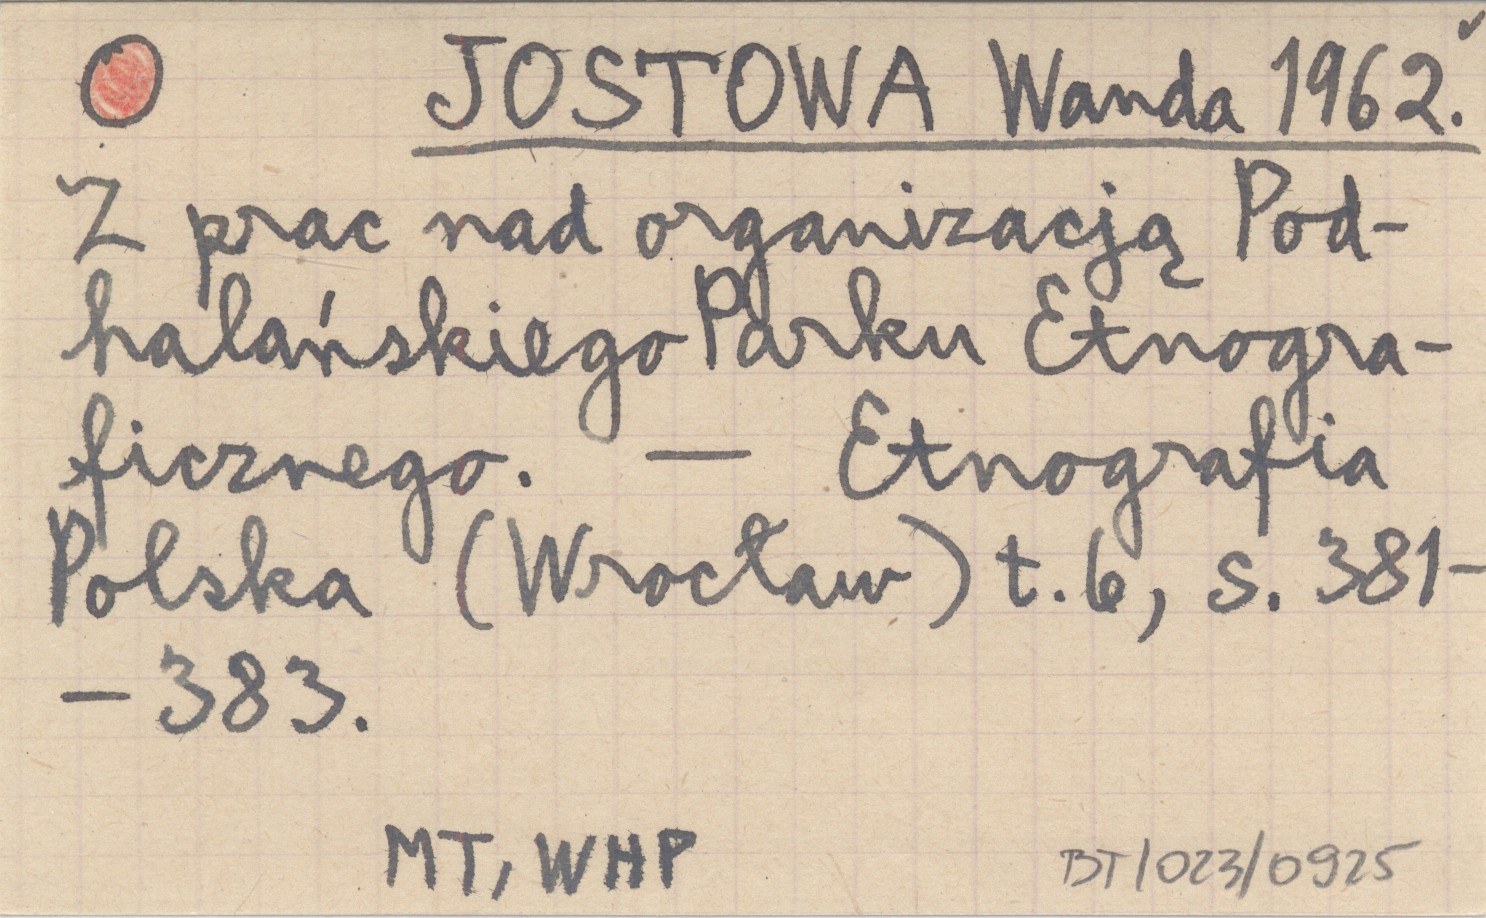 JOSTOWA Wanda 1962.
Z prac nad organizacją Pod-
halańskiego Parku Etnogra-
ficznego. — Etnografia
Polska (Wrocław) t. 6, s. 381-
- 383.
MT, WHP
BT/023/0925